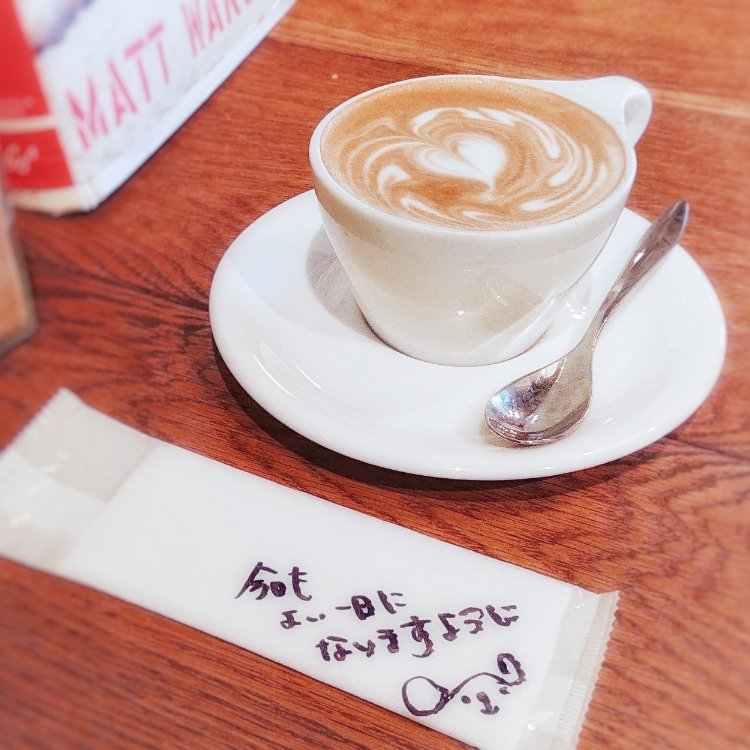 MATT
今日も
よい一日に
なりますように